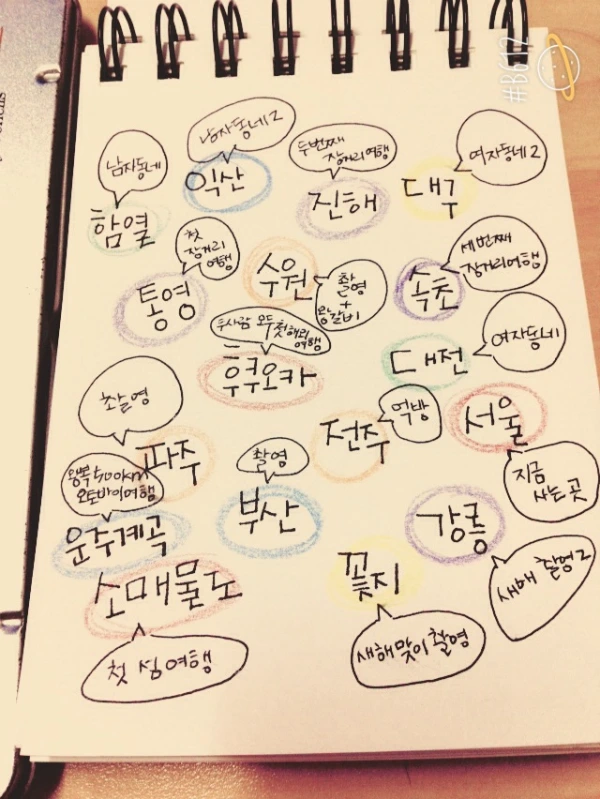 #B612
남자동네
함열
남자동네2
익산
두번째
장거리여행
진해
여자동네2
대구
첫
장거리
여행
통영
수원
촬영
+
왕갈비
세번째
장거리여행
속초
두사람 모두 첫해외
여행
후쿠오카
여자동네
대전
촬영
파주
먹방
전주
서울
지금
사는 곳
왕복 500km
오토바이여행
운주계곡
촬영
부산
강릉
새해 촬영2
소매물도
첫 섬 여행
꽃지
새해맞이 촬영